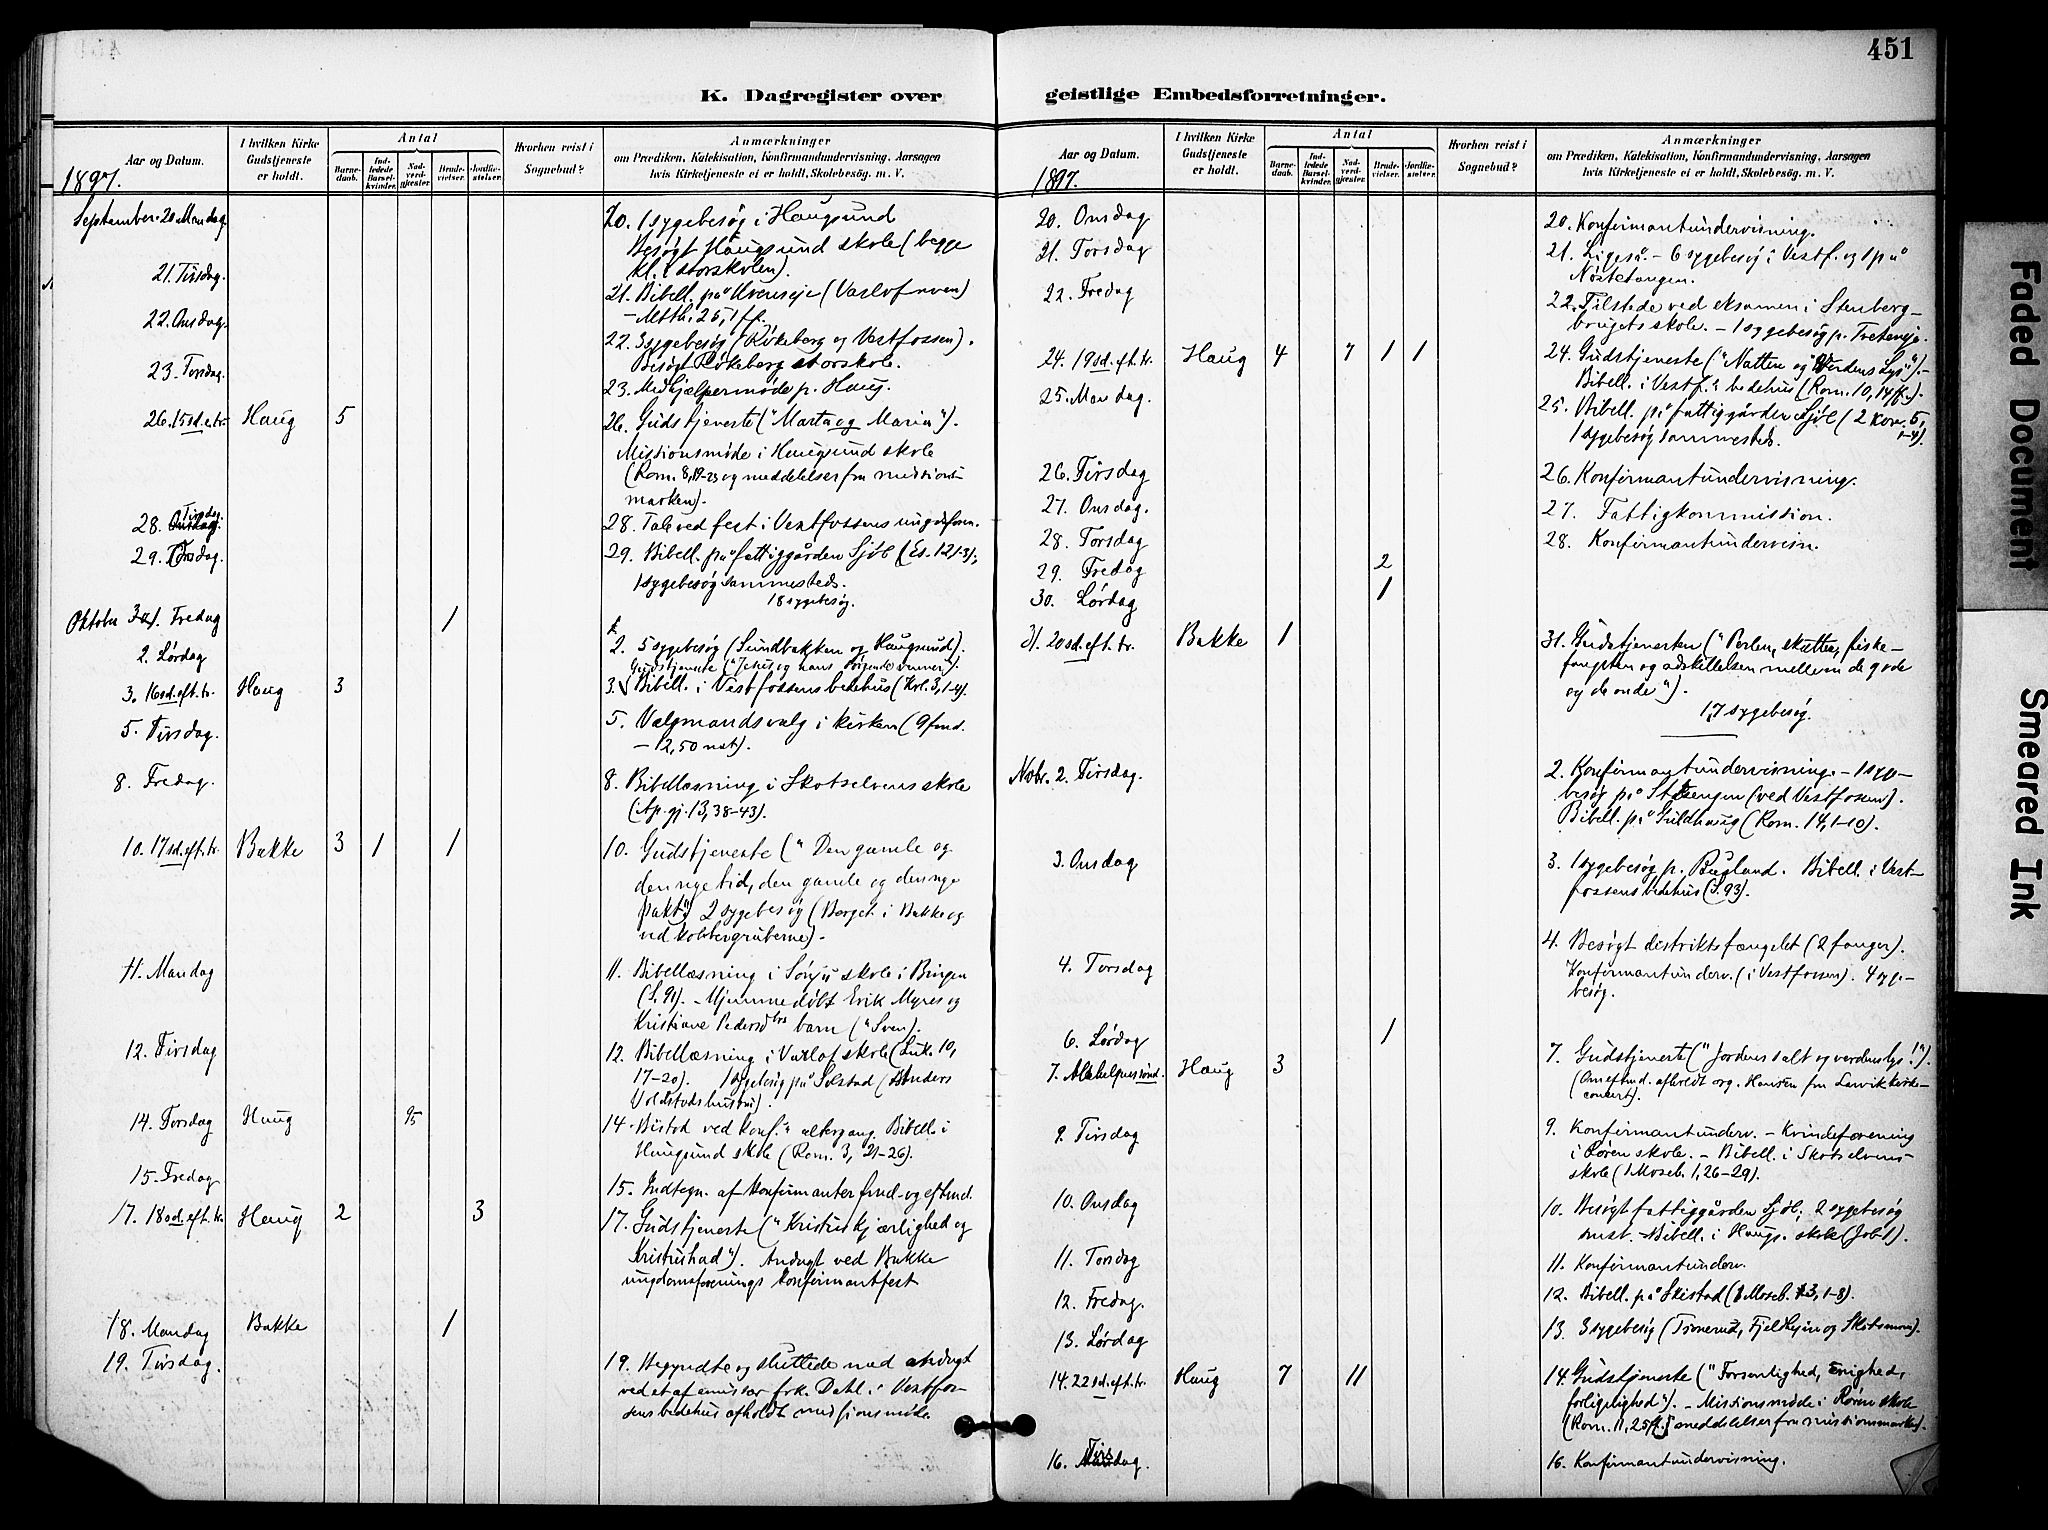 451
K. Dagregister over
geistlige Embedsforretninger.
Aar og Datum.
I hvilken Kirke Gudstjeneste er holdt.
Antal
Barnedaab.
Indledede Barselkvinder.
Nadverdgjester.
Brudevielser.
Jordfæstelser.
Hvorhen reist i Sognebud?
Anmærkninger
om Prædiken, Katekisation, Konfirmandundervisning, Aarsagen
hvis Kirketjeneste ei er holdt, Skolebesøg. m. V.
1897.
September 20 Mandag. 20. 1 sygebesøg i Haugsund
Besøgt Haugsund skole (begge
kl. i storskolen).
21. Tirsdag. 21. Bibell. på (Varlofaven)
- Matth. 25, 1 ff.
22. Onsdag. 22. 3 sygebesøg (Røkeberg og Vestfossen).
Besøgt Røkeberg storskole.
23. Torsdag. 23. Medhjælpermøde p. Haug.
26. 15 sd. e. tr. Haug 5 26. Gudstjeneste ("Marta og Maria").
Missionsmøde i Haugsund skole
(Rom. 8, 19-23 og meddelelser fra missions-
marken).
28. Tirsdag 28. Tale ved fest i Vestfossens ungd.foren.
29. Onsdag. 29. Bibell. på fattiggården Sjøl (Es. 12 1-3);
1 sygebesøg sammesteds.
18 sygebesøg.
Oktober 1. Fredag 1
2. Lørdag 2. 5 sygebesøg (Sundbakken og Haugsund).
Gudstjeneste ("Jesus og hans sørgende venner").
3. 16 sd. eft. tr. Haug 3 3. Bibell. i Vestfossens bedehus (Kol. 3, 1-4).
5. Tirsdag. 5. Valgmandsvalg i kirken (9 fmd.
- 12,50 nat).
8. Fredag. 8. Bibellæsning i Skotselvens skole
(Ap. gj. 13, 38-43).
10. 17 sd. eft. tr. Bakke 3 1 1 10. Gudstjeneste ("Den gamle og
den nye tid, den gamle og den nye
pakt"). 2 sygebesøg (Berget i Bakke og
ved Kobbergruberne).
11. Mandag 11. Bibellæsning i skole i Bingen
(S. 91). - Hjemmedøbt Erik Myres og
Kristiane Pedersd^trs barn ("Sven).
12. Tirsdag 12. Bibellæsning i Varlof skole (Luk. 10,
17-20). 1 sygebesøg på Solstad (Anders
Voldstads hustru).
14. Torsdag Haug 95 14. Bistod ved konf. altergang. Bibell. i
Haugsund skole (Rom. 3, 21-26).
15. Fredag 15. Indtegn. af konfirmanter fmd- og eftmd.
17. 18 sd. eft. tr. Haug 2 3 17. Gudstjeneste ("Kristuskjærlighed og
Kristushad"). Andagt ved Bakke
ungdomsforenings konfirmantfest
18. Mandag Bakke 1
19. Tirsdag. 19. Begyndte og sluttede med andagt
ved et af emissær frk. Dahl i Vestfos-
sens bedehus afholdt missionsmøde.
Aar og Datum.
I hvilken Kirke Gudstjeneste er holdt.
Antal
Barnedaab.
Indledede Barselkvinder.
Nadverdgjester.
Brudevielser.
Jordfæstelser.
Hvorhen reist i Sognebud?
Anmærkninger
om Prædiken, Katekisation, Konfirmandundervisning, Aarsagen
hvis Kirketjeneste ei er holdt, Skolebesøg. m. V.
1897.
20. Onsdag 20. Konfirmantundervisning.
21. Torsdag 21. Ligeså. - 6 sygebesøg i Vestf. og 1 på
Nøstetangen.
22. Fredag 22. Tilstede ved eksamen i Stenberg-
brugets skole. - 1 sygebesøg p.
24. 19 sd. eft. tr. Haug 4 7 1 1 24. Gudstjeneste ("Natten og Verdens Lys"). -
Bibell. i Vestf. bedehus (Rom. 10, 14 ff.).
25. Mandag. 25. Bibell. på fattiggården Sjøl (2 Kor. 5,
1-4).
1 sygebesøg sammesteds.
26. Tirsdag 26. Konfirmantundervisning.
27. Onsdag. 27. Fattigkommission.
28. Torsdag 28. Konfirmantundervisn.
29. Fredag 2
30. Lørdag 1
31. 20 sd. eft. tr. Bakke 1 31. Gudstjenesten ("Perlen, skatten, fiske-
fangsten og adskillelsen mellem de gode
og de onde").
17 sygebesøg.
Nobr. 2. Tirsdag. 2. Konfirmantundervisning. - 1 syge-
besøg på (ved Vestfossen).
Bibell. på Guldhaug (Rom. 14, 1-10).
3. Onsdag 3. 1 sygebesøg p. Bugland. Bibell. i Vest-
fossens bedehus (S. 93).
4. Torsdag 4. Besøgt distriktsfængslet (2 fanger).
Konfirmantunderv. (i Vestfossen). 4 syge-
besøg.
6. Lørdag 1
7. Allehelgenssønd. Haug 3 7. Gudstjeneste ("Jordens salt og verdens lys!").
(Om eftmd. afholdt org. Hansen fra Larvik kirke-
concert).
9. Tirsdag 9. Konfirmantunderv. - Kvindeforening
i Røren skole. - Bibell. i Skotselvens
skole (1 Moseb. 1, 26-29).
10. Onsdag 10. Besøgt fattiggården Sjøl; 2 sygebesøg
smst. - Bibell. i Haugs. skole (Job 1).
11. Torsdag 11. Konfirmantunderv.
12. Fredag. 12. Bibell. på Skistad (1 Moseb. 3, 1-8).
13. Lørdag 13. 3 sygebesøg
14. 22 sd. eft. tr. Haug 7 11 14. Gudstjeneste ("Forsonlighed, Enighed,
forligelighed"). - Missionsmøde i Røren skole
(Rom. 11, 25 ff. meddelelser fra missionsmarken).
16. Tirsdag. 16. Konfirmantundervisning.
Faded Document
Smeared Ink